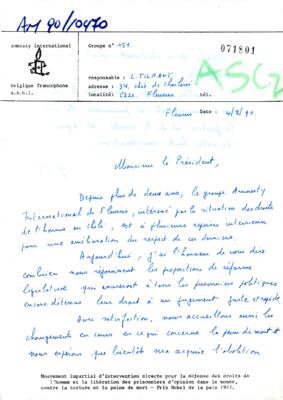 AM 90/10970
amnesty international
Groupe n° 151.
071801
ASC2
responsable : L. TILRANT
belgique francophone
adresse : 34, chée de Charleroi
a.s.b.l.
localité: 6220. Fleurus tél.
Fleurus Date : 4/7/90.
Monsieur le Président,
Depuis plus de deux ans, le groupe Amnesty
International de Fleurus, intéressé par la situation des droits
de l'homme en Chili, est à plusieurs reprises intervenu
pour une amélioration du respect de ces derniers.
Aujourd'hui, j'ai l'honneur de vous dire
combien nous réjouissent les propositions de réforme
législative qui ouvriront à tous les prisonniers politiques
encore détenus leur droit à un jugement juste et rapide
Avec satisfaction, nous accueillons aussi les
changements en cours en ce qui concerne la peine de mort et
nous espérons que bientôt sera acquise l'abolition
Mouvement impartial d'intervention directe pour la défense des droits de
l'homme et la libération des prisonniers d'opinion dans le monde,
contre la torture et la peine de mort - Prix Nobel de la paix 1977.